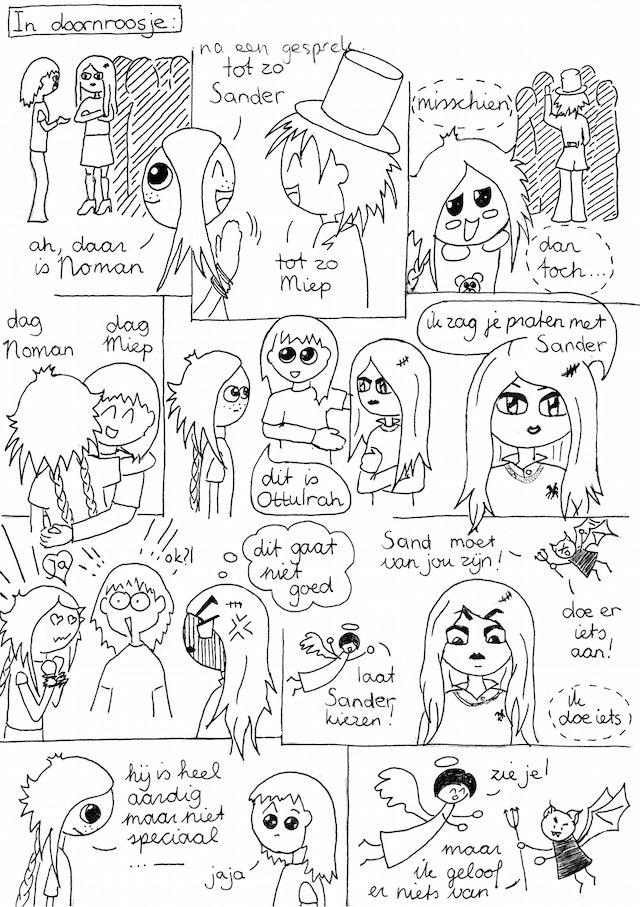 In doornroosje:
na een gesprek
tot zo
Sander
ah, daar
is Noman
tot zo
Miep
misschien
dan
toch...
dag
Noman
dag
Miep
dit is
Ottulrah
ik zag je praten met
Sander
ja
ok?!
dit gaat
niet
goed
laat
Sander
kiezen!
Sand moet
van jou zijn!
doe er
iets
aan!
ik
doe iets
hij is heel
aardig
maar niet
speciaal
...
jaja
zie je!
maar
ik geloof
er niets van